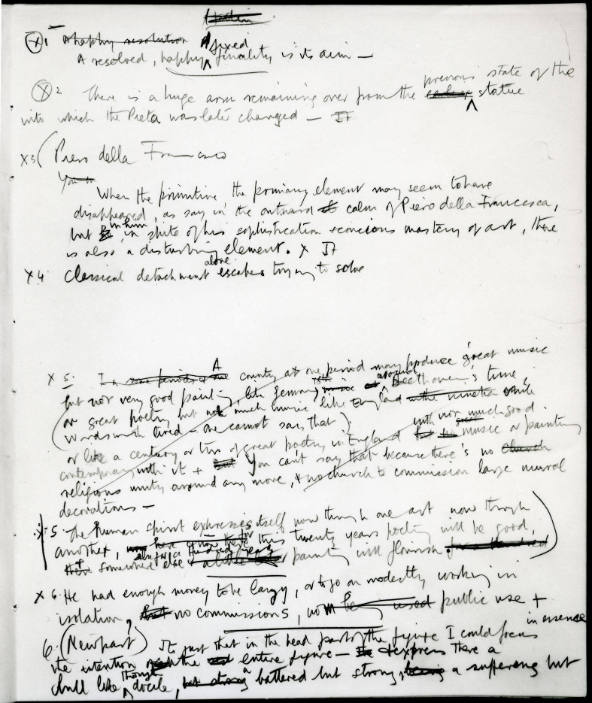 X1 A happy resolution A fixed
A resolved, happy finality is its aim —
X2 There is a huge arm remaining over from the earlier previous state of the statue
into which the Pieta was later changed —
X3 (Piero della Francesca
When the primitive the primary element may seem to have
disappeared, as say in the outward calm of Piero della Francesca,
but in him, in spite of his sophistication + conscious mastery of art, there
is also a disturbing element. X
X4 Classical detachment alone escapes trying to solve
X 5. A country at one period may produce great music
but not very good painting, like Germany around Beethoven's time,
or great poetry but not much music like England while
(Wordsworth lived — one cannot say that)
or like a century or two of great poetry in England with not much good music or painting
contemporary with it + You can't say that because there's no church
religious unity around any more, + no church to commission large mural
decorations —
X 5 The human spirit expresses itself now through one art now through
another, this twenty years poetry will be good,
somewhere else painting will flourish
X 6. He had enough money to be lazy, or to go on modestly working in
isolation, no commissions, no public use +
6. (New part) It's just that in the head part of the figure I could focus in essence
the intention the entire figure — + express there a
bull like though docile, battered but strong, a suffering but